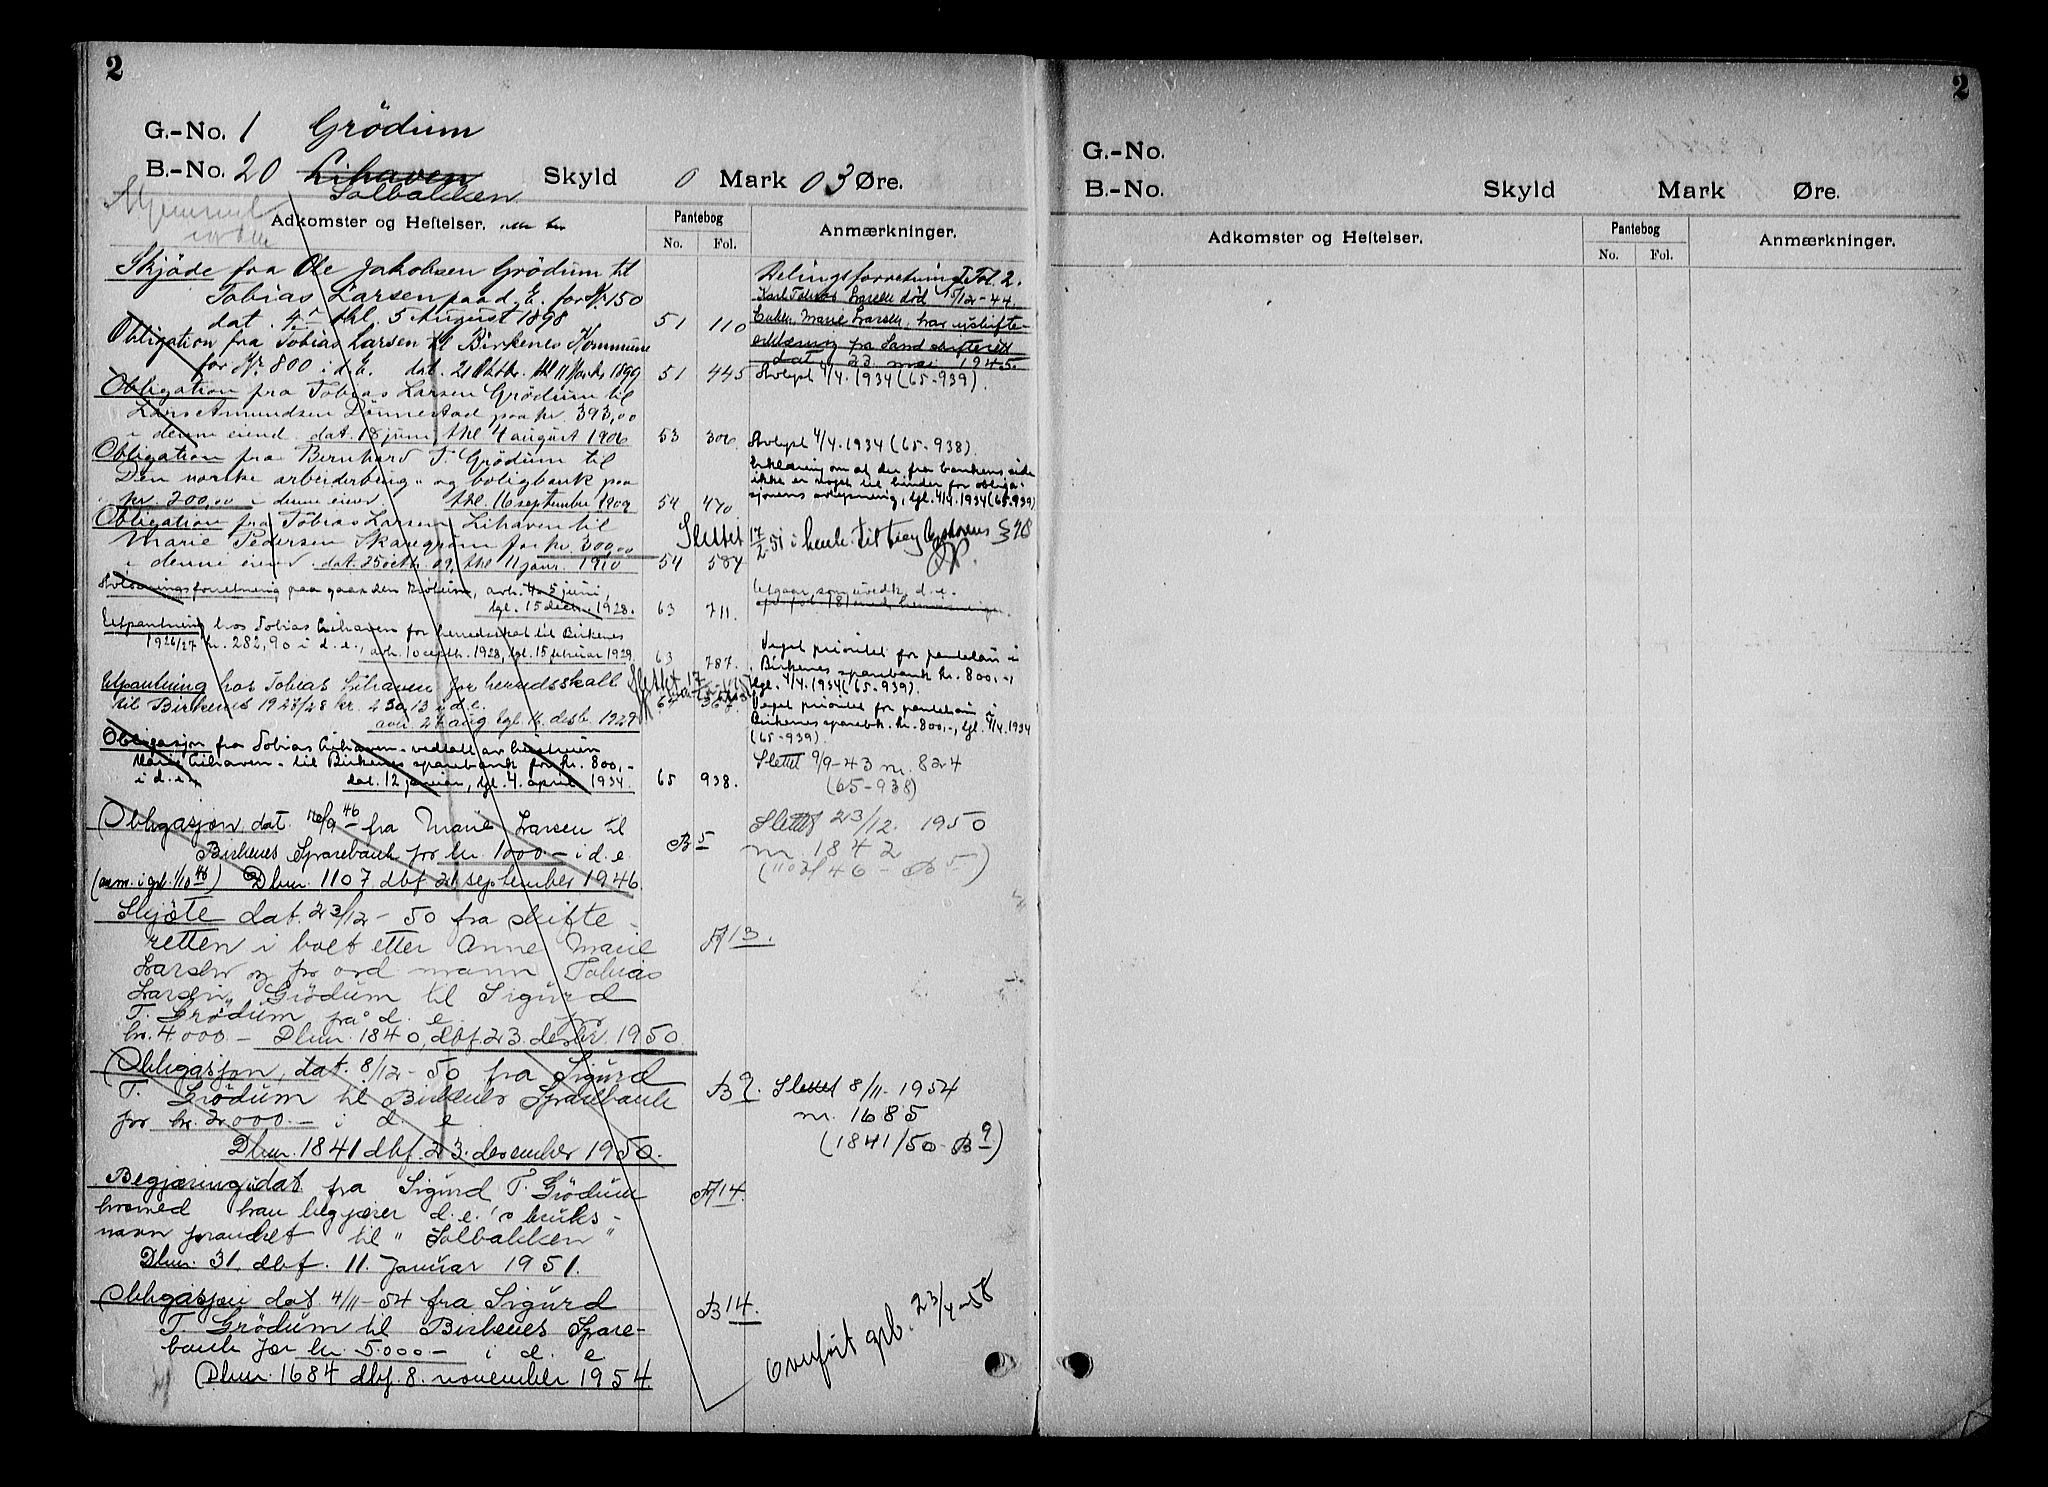 2
G.-No. 1 Grödum
B.-No. 20 Lihaven Skyld 0 Mark 03 Øre.
Solbakken
Adkomster og Heftelser.
Pantebog
No. Fol.
Anmærkninger.
Skjöde fra Ole Jakobsen Grödum til
Tobias Larsen paa d. E. for Kr 150
dat. thl. 5 August 1898 51 110
Obligation fra Tobias Larsen til Birkenes Kommune
for Kr. 800 i d. E. dat. 21 Oktbr. thl 11 1899 51 445
Obligation fra Tobias Larsen Grödum til
Lars Amundsen Dönnestad paa kr. 393,00
i denne eiend. dat. 18 juni, thl 4 august 1906 53 306
Obligation fra Bernhard T. Grödum til
Den norske arbeiderbrug- og boligbank paa
kr. 200,00 i denne eiend. thl. 16 september 1909 54 470
Obligation fra Tobias Larsen Lihaven til
Marie Pedersen Skaregröm for kr. 300,00
i denne eiend. dat. 25 octb. 09, thl 11 janr. 1910 54 584
paa gaarden Grödum, avh. 4. 5 juni,
tgl. 15 decbr. 1928. 63 711.
Utpantning hos Tobias Lihaven for herredsskat til Birkenes
1926/27 kr. 282,90 i d. e., avh. 10 septb. 1928, tgl. 15 februar 1929. 63 787.
Utpantning hos Tobias Lihaven for herredsskatt
til Birkenes 1927/28 kr. 230,13 i d. e.
avh. 27 aug tgl. 16. desb. 1929 64 367.
Obligasjon fra Tobias Lihaven - vedtatt av hustruen
Marie Lihaven - til Birkenes sparebank for kr. 800,-
i d. e. dat. 12 januar, tgl. 4. april 1934. 65 938.
Obligasjon, dat. 20/9 46 fra Marie Larsen til
Birkenes Sparebank for kr 1000.- i d. e B 5
(anm. i grb. 1/10 46) Dbnr. 1107 dbf 21 september 1946
Skjöte dat. 23/12 - 50 fra skifte
retten i boet etter Anne Marie A 13.
Larsen og mann Tobias
Larsen Grödum til Sigurd
T. Grödum på d. e. for
kr. 4000.- Dbnr. 1840, dbf. 23. desbr. 1950
Obligasjon, dat. 8/12 - 50 fra Sigurd
T. Grödum til Birkenes Sparebank B 9.
for kr. 2000.- i d. e.
Dbnr. 1841 dbf. 23. desember 1950.
Begjæring, idat fra Sigurd T. Grödum A 14.
hvormed han begjærer d. e.'s bruks-
navn forandret til "Solbakken"
Dbnr. 31. dbf. 11. Januar 1951.
Obligasjon dat 4/11 - 54 fra Sigurd
T. Grödum til Birkenes Spare- B 14.
bank for kr. 5.000.- i d. e
Dbnr. 1684 dbf. 8. november 1954.
Delingsforretning I Fol. 2.
Karl Tobias Larsen död 15/12 - 44.
Enken, Marie Larsen, har uskifte-
erklæring fra Sand skifterett
dat 23. mai 1945.
Avlyst 4/4. 1934 (65-939).
Avlyst 4/4. 1934 (65-938).
Erklæring om at der fra bankens side
ikke er noget til hinder for obliga-
sjonens avlysning, tgl. 4/4. 1934 (65-939)
Slettet 17/2-51 i henh. til Grbokens § 18
Utgaar som uvedk. d. e.
Veget prioritet for pantelån i
Birkenes sparebank kr. 800,-,
tgl. 4/4. 1934 (65-939).
Veget prioritet for pantelån i
Birkenes sparebk. kr. 800,-, tgl. 4/4. 1934
(65-939).
Slettet 9/9-43 nr. 824
(65-938)
Slettet 23/12. 1950
nr. 1842
(1107/46 - B 5)
Slettet 8/11. 1954
nr. 1685
(1841/50 - B 9)
Overført grb. 23/4-58
2
G.-No.
B.-No. Skyld Mark Øre.
Adkomster og Heftelser.
Pantebog
No. Fol.
Anmærkninger.